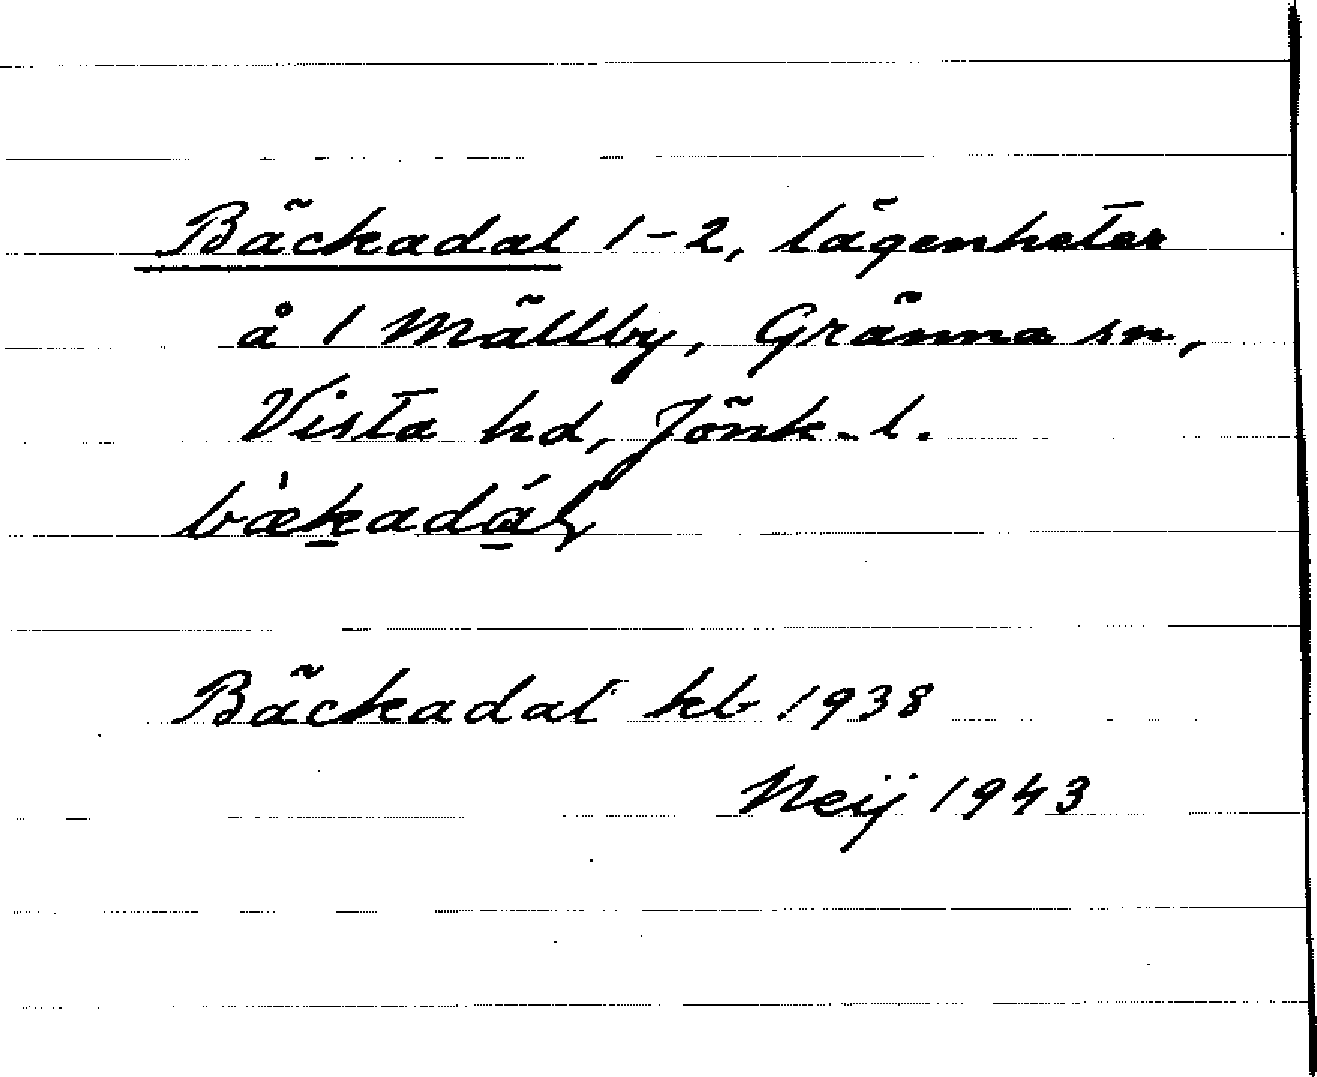 Bäckadal 1-2, lägenheter
å 1 Mällby, Gränna sn,
Vista hd, Jönk. l.
bæ̀kadál
Bäckadal kb 1938
Neij 1943